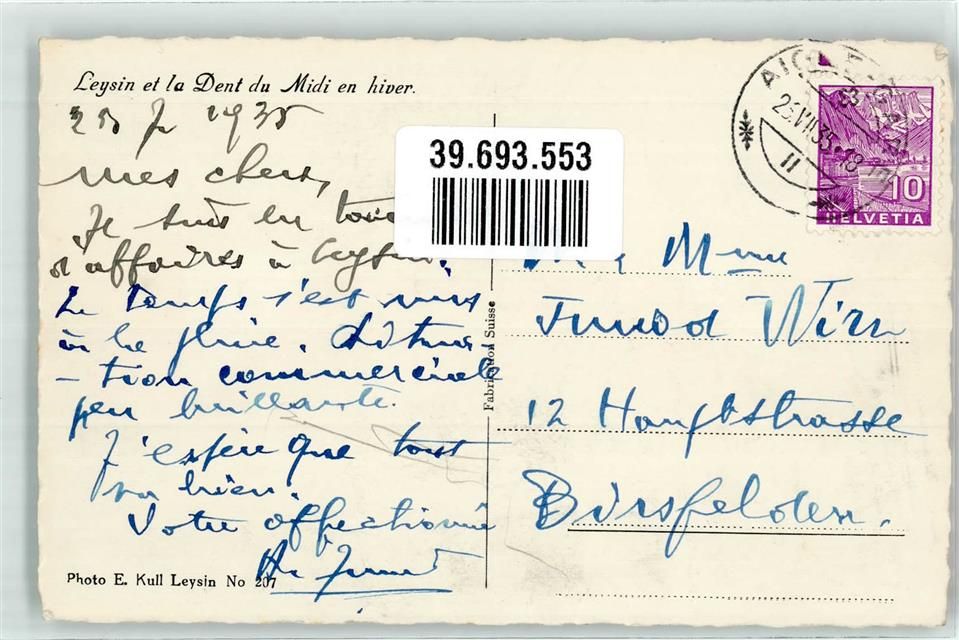 Leysin et la Dent du Midi en hiver.
1935
39.693.553
Mes chers,
Je suis en
d'affaires à Leysin.
Le temps s'est mis
à la pluie. Situa-
-tion commerciale
peu brillante.
J'espère que tout
va bien.
Votre affectionné
Photo E. Kull Leysin No 207
Fabrication Suisse
AIGLE
VII.35.18
II
10
HELVETIA
Mme
Junod Wirz
12 Hauptstrasse
Birsfelden.